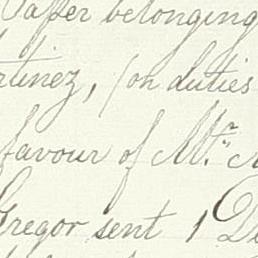 Paper belonging
rtinez, (on duties
favour of Mr.
Gregor sent 1